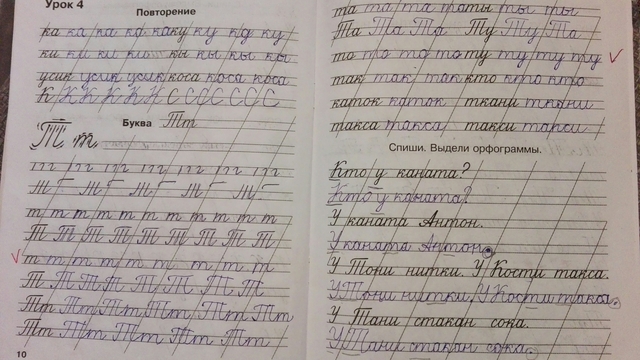 Урок 4
Повторение
ка ка ка ка каку ку ку ку
ки ки ки ки кы кы кы кы
усик усик усик коса коса коса
К К К К К К С С С С С С С
Буква Тт
Т т
т т т т т т т т т
Т Т Т Т Т Т Т Т Т
т т т т т т т т т
Т Т Т Т Т Т Т Т
Тт Тт Тт Тт Тт Тт Тт
Тт Тт Тт Тт Тт Тт
10
та та та та ты ты ты ты
Та Та Та Та Ту Ту Ту Та
то то то то ту ту ту ту
так так так кто кто кто
каток каток ткани ткани
такса такса такси такси
Спиши. Выдели орфограммы.
Кто у каната?
Кто у каната?
У каната Антон.
У каната Антон.
У Тони нитки. У Кости такса.
У Тони нитки. У Кости такса.
У Тани стакан сока.
У Тани стакан сока.